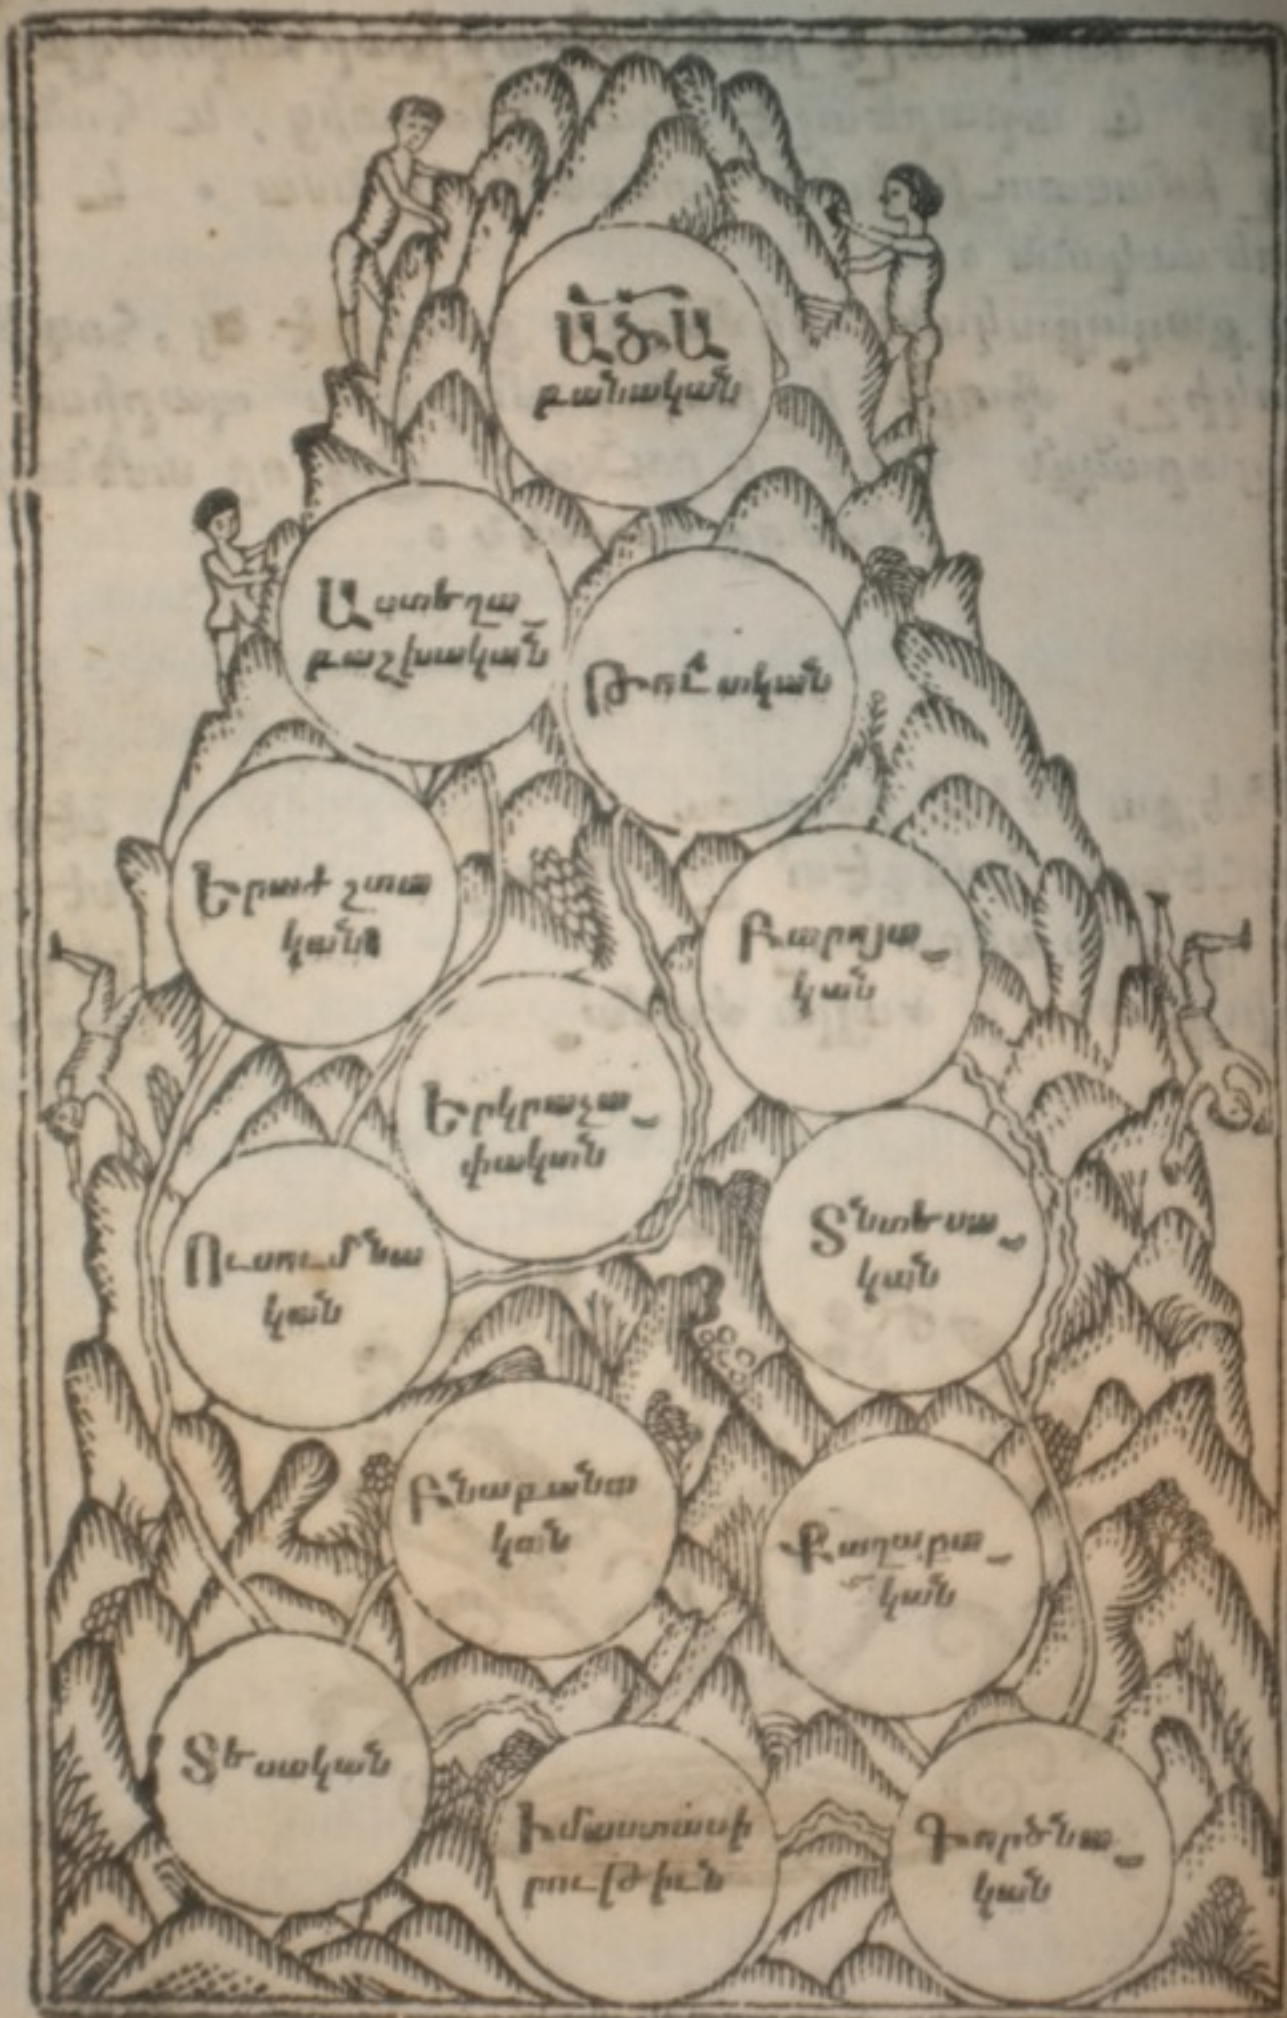 ԱԾԱ
բանական
Աստեղա_
բաշխական
Թուական
Երաժշտա
կան
Բարոյա_
կան
Երկրաչա_
փական
Ուսումնա
կան
Տնտեսա_
կան
Բնաբանա
կան
Քաղաքա_
կան
Տեսական
Իմաստասի
րութիւն
Գործնա_
կան